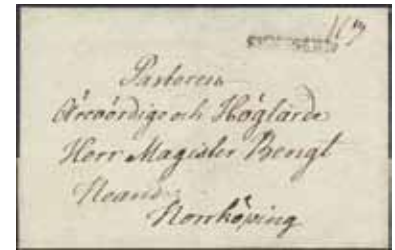 Pastoren
Ärevördige och Höglärde
Herr Magister Bengt
Norrköping